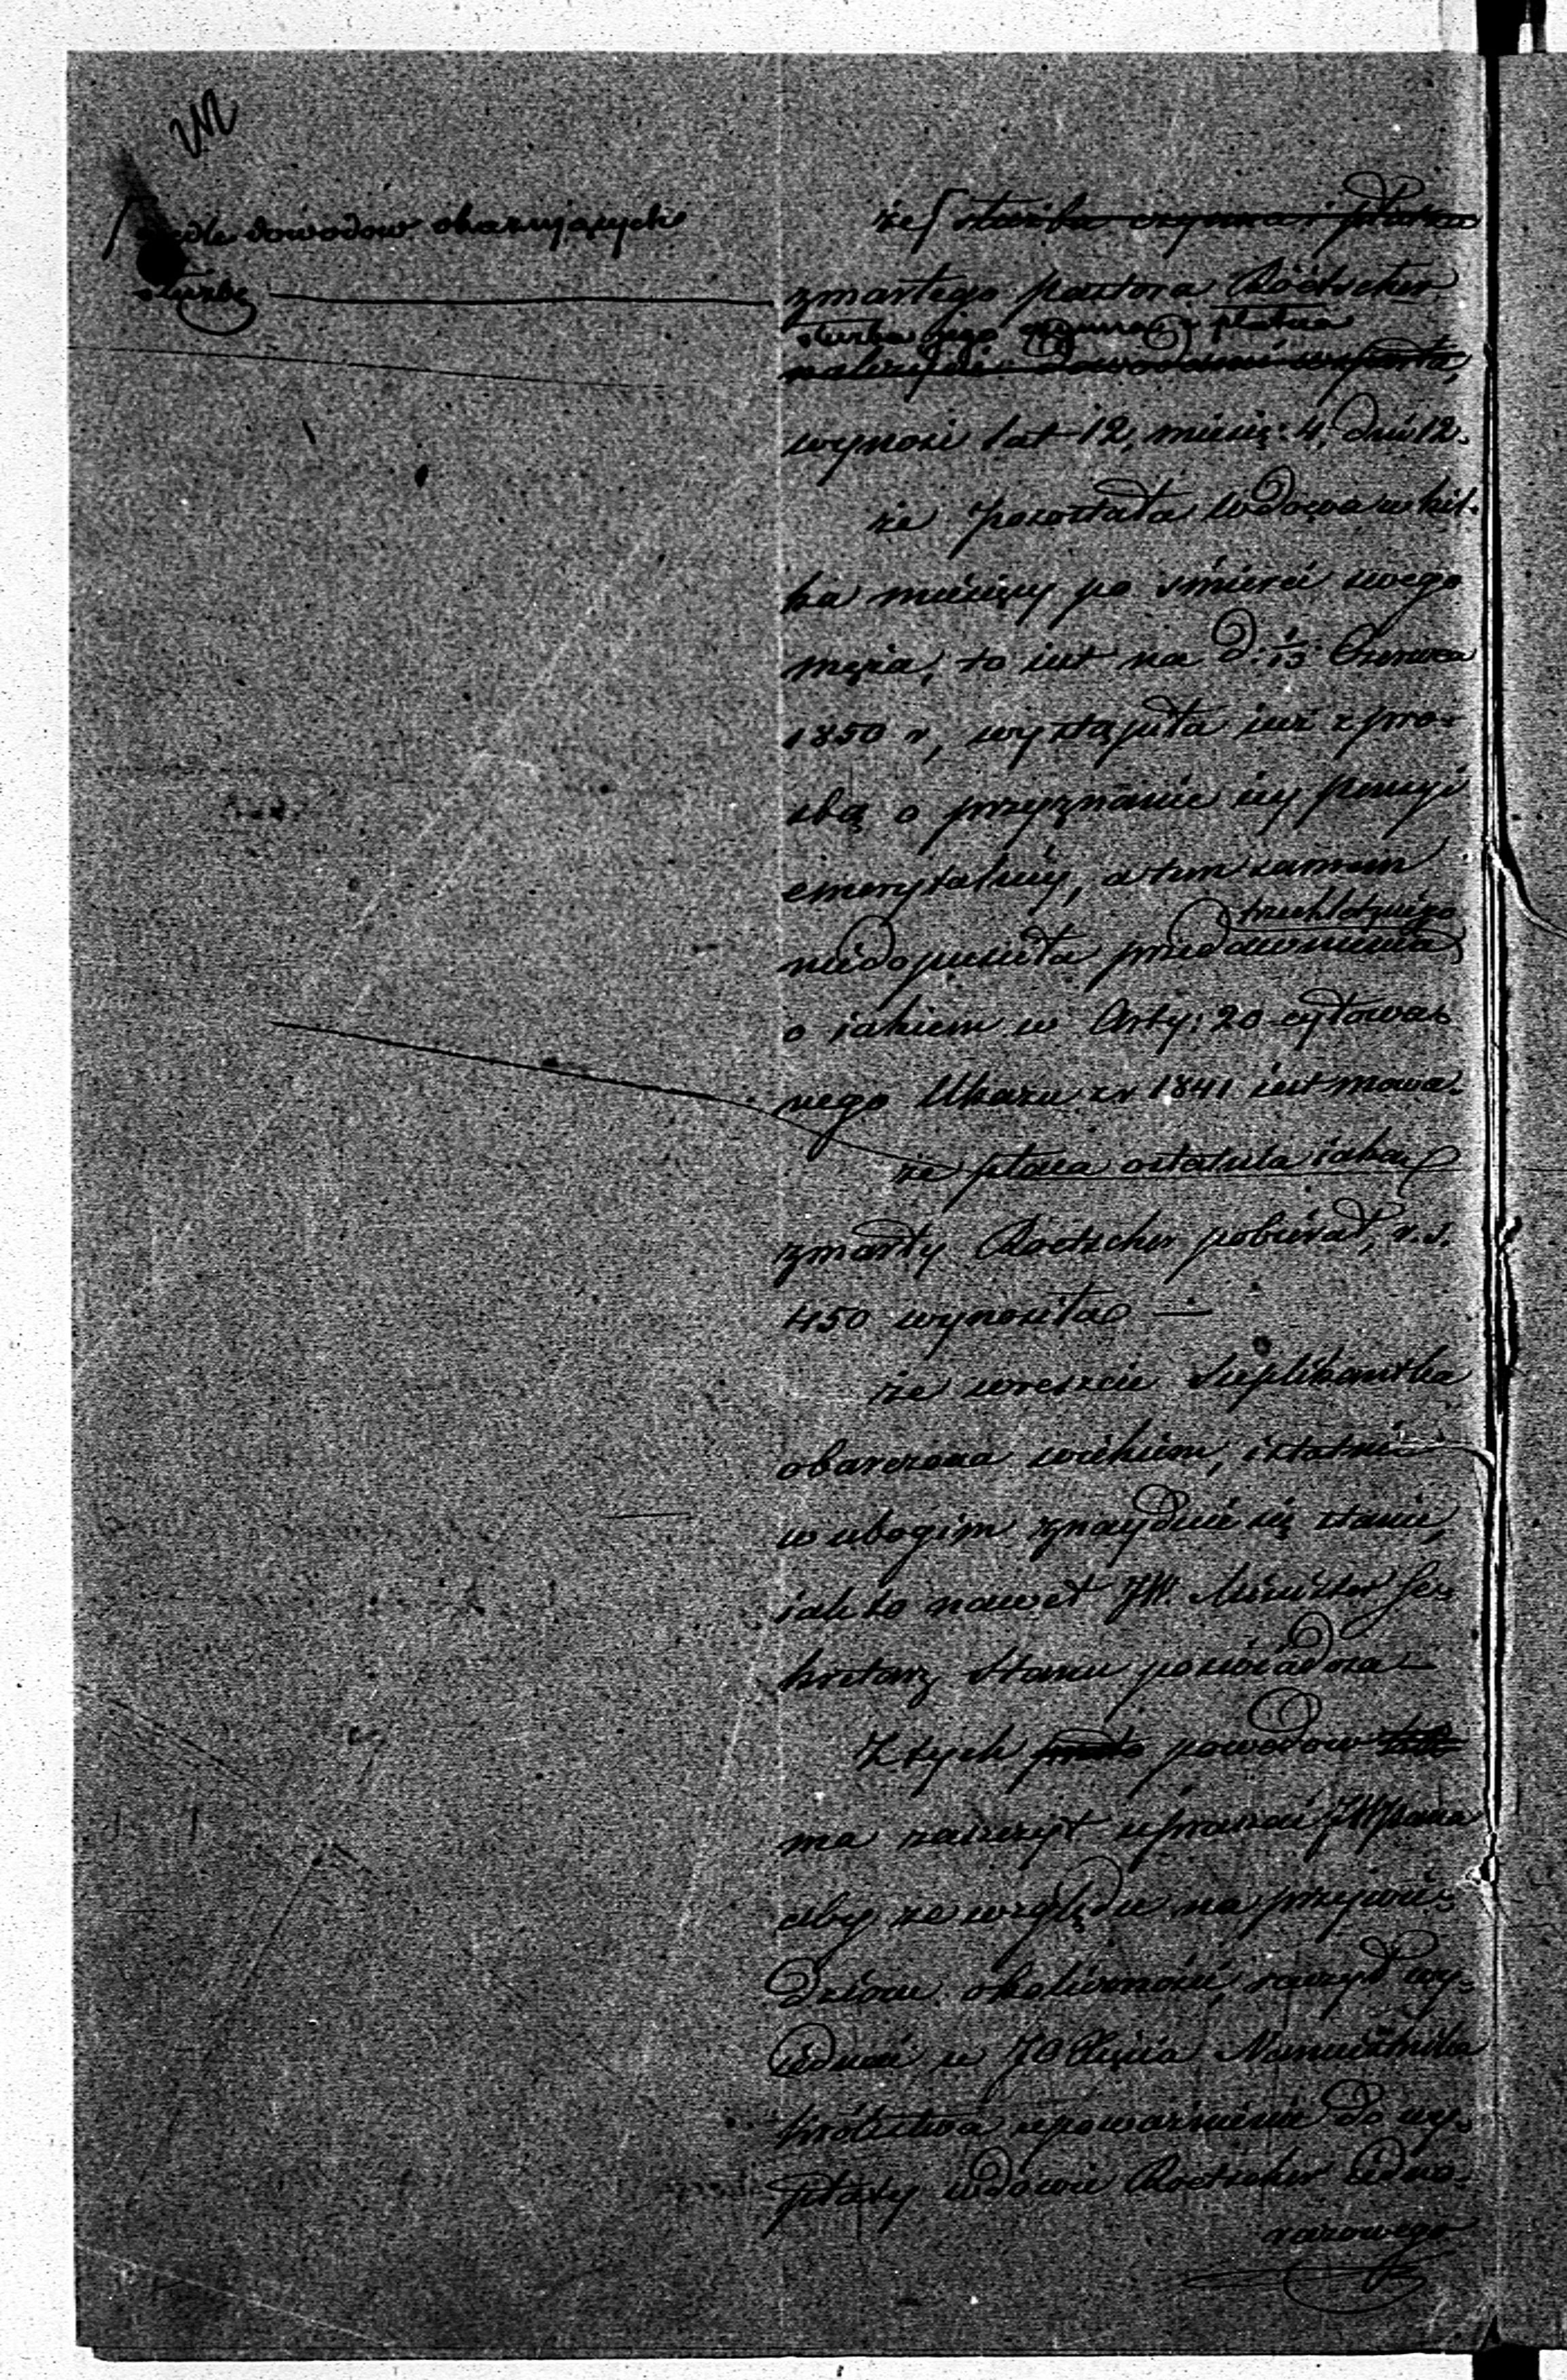 wedle dowodów okazujących
służbę
że służba czynna i płatna
zmarłego pastora Röetscher
służba jego czynna i płatna
należycie dowodami wsparta,
wynosi lat 12, miesię: 4, dni 12.
że pozostała wdowa w kil-
ka miesięcy po śmierci swego
męża, to iest na d. 1/13 Czerwca
1850 r, wystąpiła iuż z proś-
bą o przyznanie iey pensyi
emerytalnéy, a tem samem
trzechletniego
niedopuściła przedawnienia
o iakiem w Arty: 20 cytowa-
nego Ukazu z r 1841 iest mowa.
że płaca ostatnia iaką
zmarły Roetscher pobierał, r. s.
450 wynosiła —
że wreszcie Suplikantka
obarczona wiekiem, istotnie
w ubogim znayduie się stanie,
iak to nawet JW. Minister Se-
kretarz Stanu poświadcza —
Z tych powodów
ma zaszczyt upraszać JWPana
aby ze względu na przywie-
dzione okoliczności, raczył wy-
iednać u JO Xięcia Namiestnika
Królestwa upoważnienie do wy-
płaty wdowie Roetscher iedno-
razowego